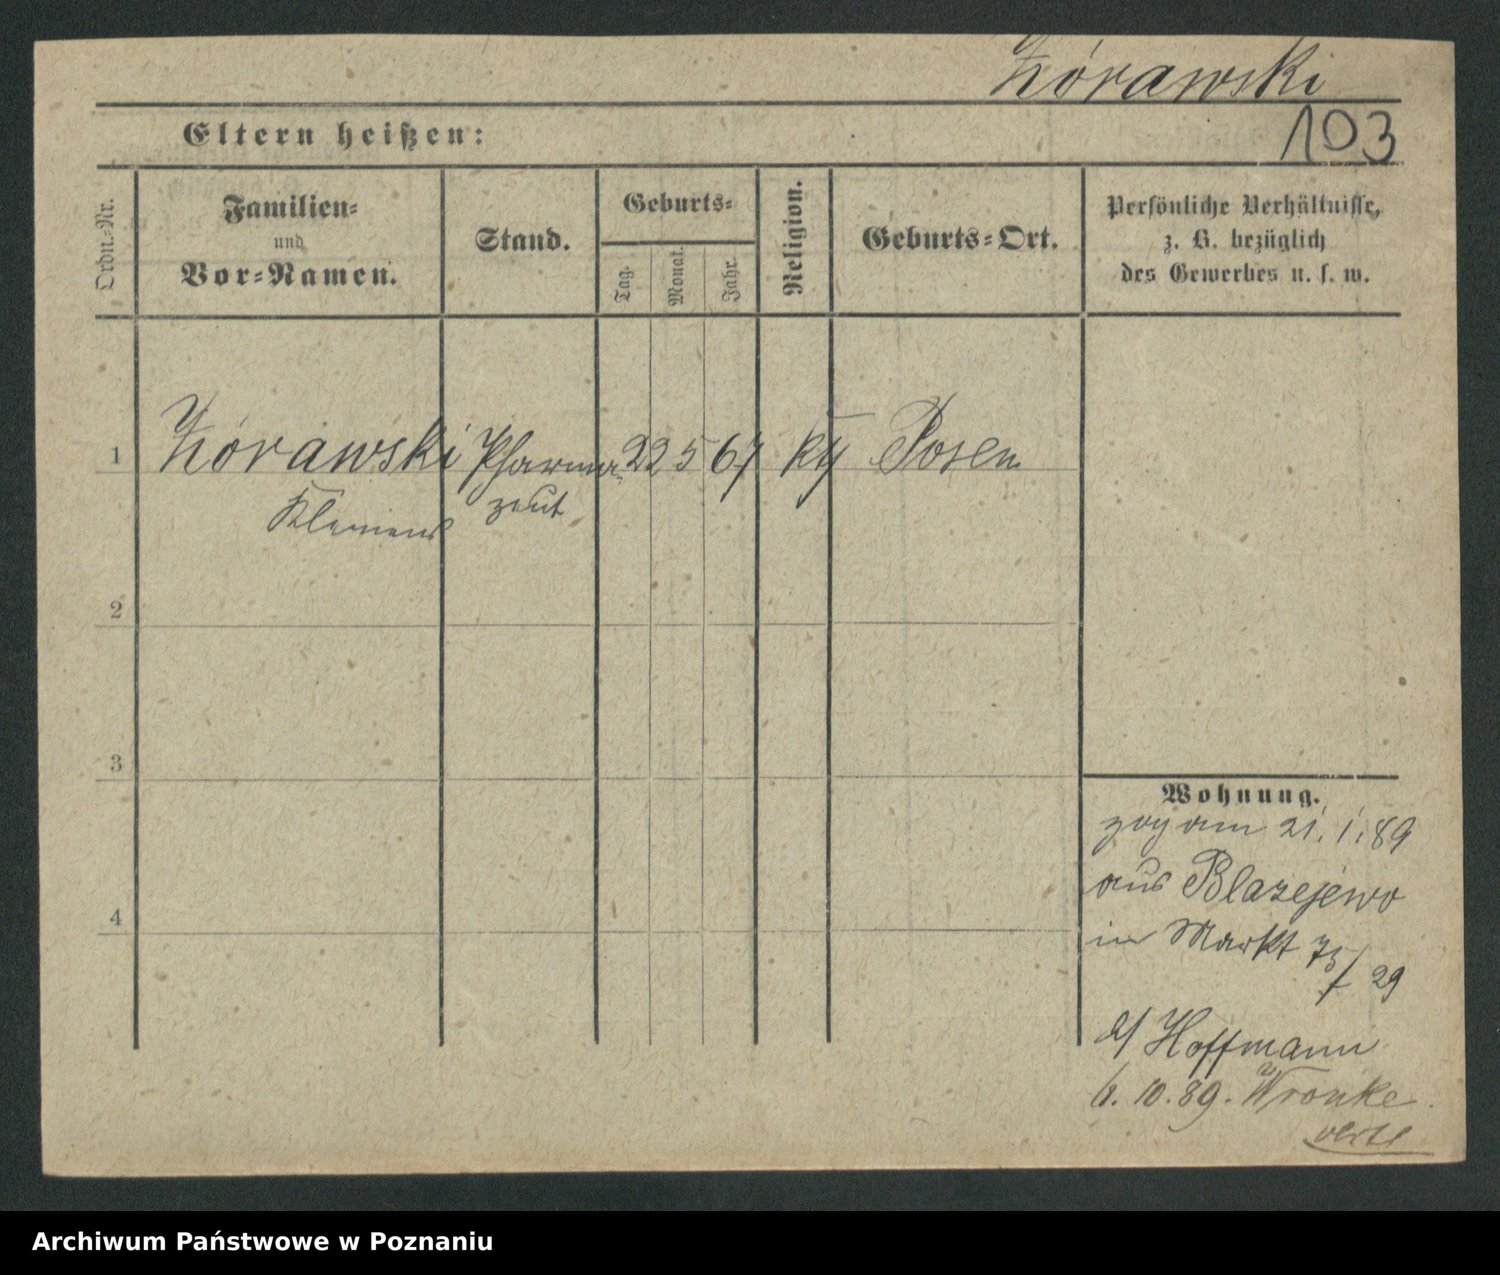 Żórawski
103
Eltern heißen:
Ordn.-Nr.
Familien-
und
Vor-Namen.
Stand.
Geburts-
Tag.
Monat.
Jahr.
Religion.
Geburts-Ort.
Persönliche Verhältnisse,
z. B. bezüglich
des Gewerbes u. s. w.
1 Żórawski Pharma- 22 5 67 Posen
Klemens zeut
2
3
4
Wohnung.
zog am 21.1.89
aus Blazejewo
in Markt 75/29
b/ Hoffmann
10.89. Wronke
verte
Archiwum Państwowe w Poznaniu